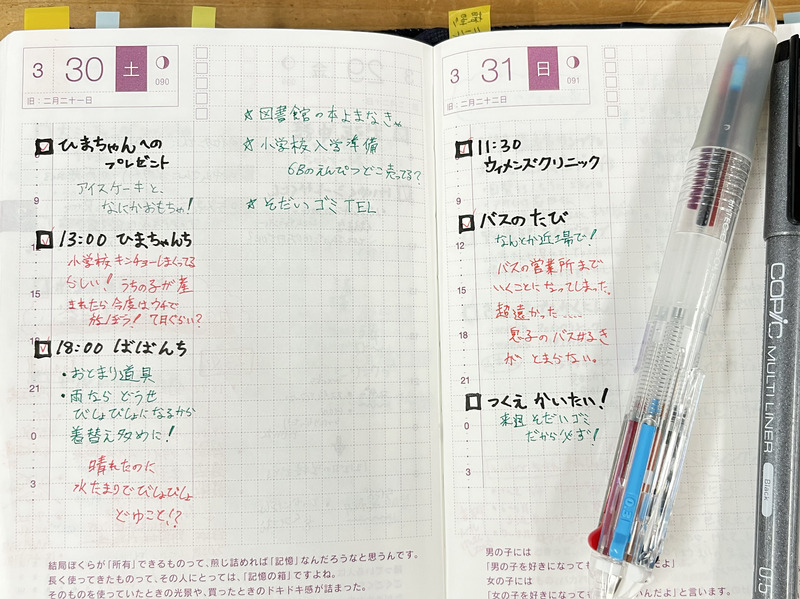 3 30 土
090
旧:二月二十一日
ひまちゃんへの
プレゼント
アイスケーキと、
なにかおもちゃ!
13:00 ひまちゃんち
小学校キンチョーしまくってる
らしい! うちの子が産
まれたら今度はウチで
遊ぼう! 7日ぐらい?
18:00 ばばんち
・おとまり道具
・雨なら どうせ
びしょびしょになるから
着替え多めに!
晴れたのに
水たまりでびしょびしょ
どゆこと!?
9
12
15
18
21
0
3
☆図書館の本よまなきゃ
☆小学校入学準備
6Bのえんぴつどこ売ってる?
☆そだいゴミTEL
結局ぼくらが「所有」できるものって、煎じ詰めれば「記憶」なんだろうなと思うんです。
長く使ってきたものって、その人にとっては、「記憶の箱」ですよね。
そのものを使っていたときの光景や、買ったときのドキドキ感が詰まった。
3 31 日
091
旧:二月二十二日
11:30
ウィメンズクリニック
バスのたび
なんとか近場で!
バスの営業所まで
いくことになってしまった。
超遠かった....
息子のバス好き
が とまらない。
つくえ かいたい!
来週 そだいゴミ
だから必ず!
9
12
15
18
21
0
3
男の子には
「男の子を好きになっても
女の子には
「女の子を好きになっても
いんだよ」と言います。
COPIC MULTI LINER
Black
0.5